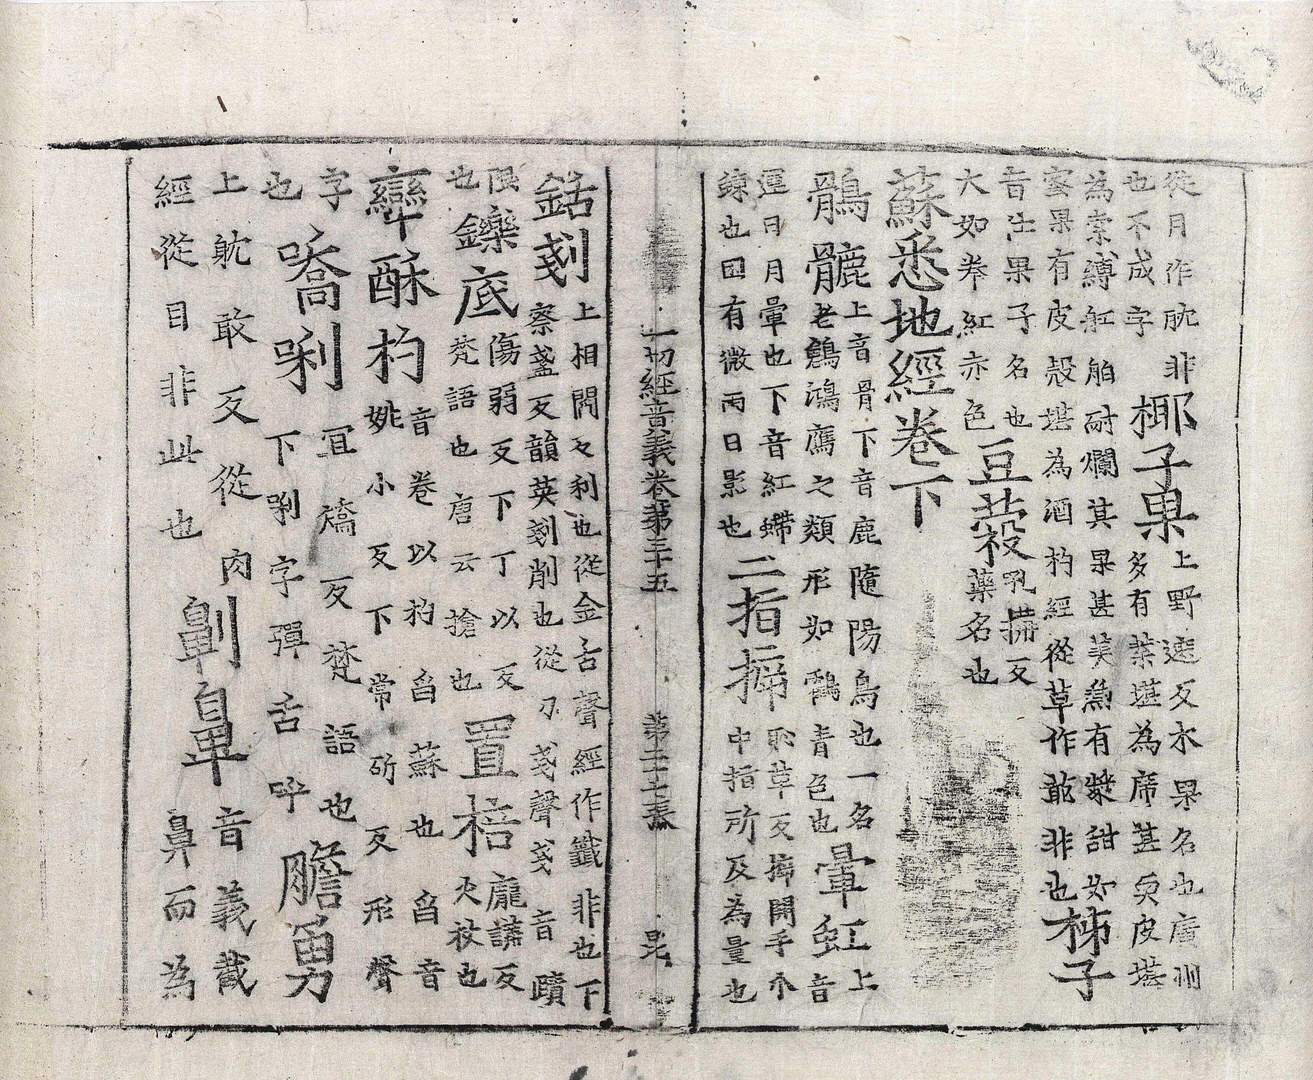 從月作䏙非
也不成字
椰子果
上野遮反水果名也廣州
多有葉堪為席甚奭皮堪
為索縛舡舶耐爛其果甚美兼有漿甜如
蜜果有皮殼堪為酒杓經從草作䓉非也
柿子
音士果子名也
大如拳紅赤色
豆䅽
吼搆反
藥名也
蘇悉地經卷下
鶻䴪
上音骨下音鹿隨陽鳥也一名
老鶬鴻鴈之類形如鶴青色也
暈虹
上
音
運日月暈也下音紅螮
蝀也因有微雨日影也
二指㨽
耻革反㨽開手大
中指所及為量也
一切經音義卷第三十五 第二十七張 昆
銛剗
上相閻反利也從金舌聲經作鑯非也下
察盞反韻英剗削也從刀戔聲戔音蹟
限
也
鑠底
傷弱反下丁以反
梵語也唐云搶也
置棓
龐講反
大杖也
欒酥杓
音卷以杓舀蘇也舀音
姚小反下常斫反形聲
字
也
喬唎
宜矯反梵語也
下唎字彈舌呼
膽勇
上躭敢反從肉
經從目非此也
劓鼻
音義截
鼻而為